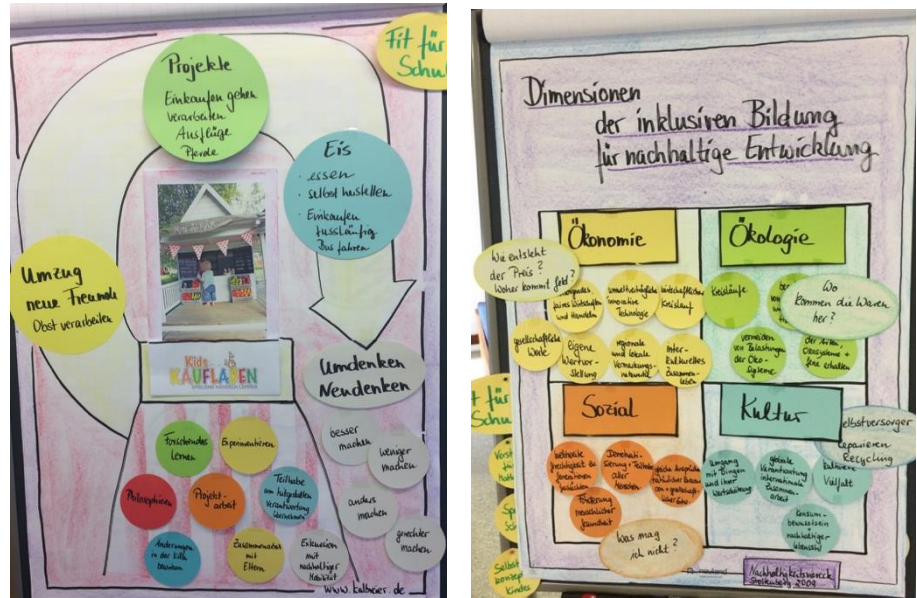 Projekte
Einkaufen gehen
verarbeiten
Ausflüge
Pferde
Fit für
Schul
Eis
· essen
· selbst herstellen
· Einkaufen
fussläufig
Bus fahren
Umzug
neue Freunde
Obst verarbeiten
Kids
KAUFLADEN
Umdenken
Neudenken
besser
machen
weniger
machen
anders
machen
gerechter
machen
Forschendes
Lernen
Experimentieren
Philosophieren
Projekt-
arbeit
Teilhabe
Verantwortung
übernehmen
Änderungen
in der Kita
Zusammenarbeit
mit
Eltern
Exkursion
mit
nachhaltiger
Mobilität
www.kalheier.de
Dimensionen
der inklusiven Bildung
für nachhaltige Entwicklung
Ökonomie
Wie entsteht
der Preis?
Woher kommt Geld?
faires Wirtschaften
und Handeln
umweltverträgliche
innovative
Technologie
wirtschaftlicher
Kreislauf
gesellschaftliche
Werte
eigene
Wertvor-
stellung
regionale
und lokale
Inter-
kulturelles
Zusammen-
leben
Ökologie
Kreisläufe
Wo
kommen die Waren
her?
vermeiden
von Belastungen
der Öko-
systeme
der Arten,
Ökosysteme +
erhalten
Sozial
Demokrati-
sierung + Teilhabe
aller
Menschen
Förderung
menschlicher
Gesundheit
Was mag
ich nicht?
Kultur
elbstversorger
reparieren
Recycling
Umgang
mit Dingen
und ihrer
Wertschätzung
globale
Verantwortung
internationale
Zusammen-
arbeit
kulturelle
Vielfalt
Konsum-
bewusstsein +
nachhaltiger
Lebensstil
Nachhaltigkeitsviereck
Stoltenberg 2009
it für
Schu
Selbst
konzept
Kindes